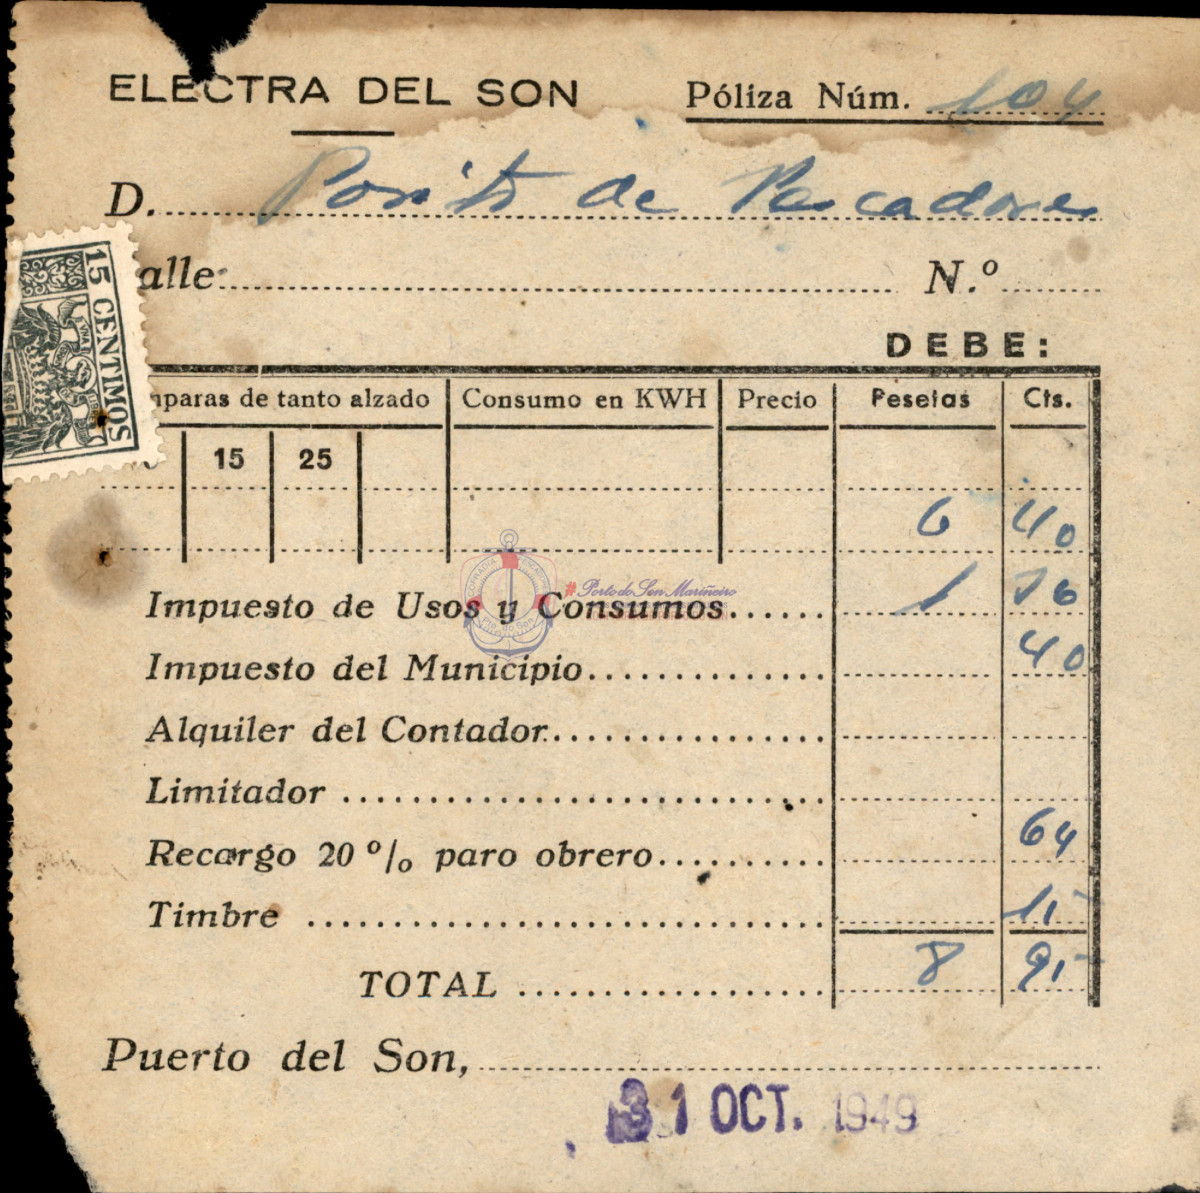 ELECTRA DEL SON
Póliza Núm. 104
D. Posito de Pescadores
alle
N.º
DEBE:
15 CENTIMOS
mparas de tanto alzado Consumo en KWH Precio Pesetas Cts.
15 25
6 40
Impuesto de Usos y Consumos 1 76
Impuesto del Municipio 40
Alquiler del Contador
Limitador
Recargo 20 % paro obrero 64
Timbre 15
TOTAL 8 95
Puerto del Son,
31 OCT. 1949
#Porto do Son Mariñeiro